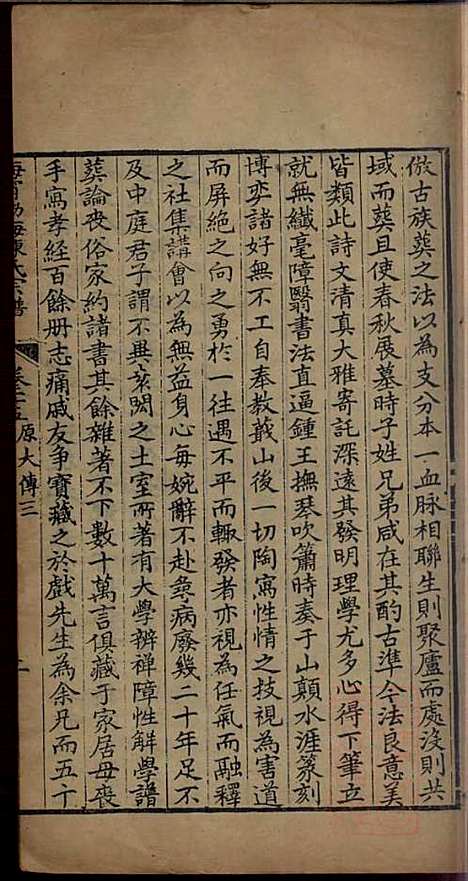 倣古族葬之法以為支分本一血脉相聯生則聚廬而處沒則共
域而葬且使春秋展墓時子姓兄弟咸在其酌古準今法良意美
皆類此詩文清真大雅寄託深遠其發明理學尤多心得下筆立
就無纎毫障翳書法直逼鍾王撫琴吹簫時奏于山顛水涯篆刻
博弈諸好無不工自奉教蕺山後一切陶寫性情之技視為害道
而屏絶之向之勇於一往遇不平而輙發者亦視為任氣而融釋
之社集講會以為無益身心每婉辭不赴尋病廢幾二十年足不
及中庭君子謂不異袁閎之土室所著有大學辨禅障性解學譜
葬論喪俗家約諸書其餘雜著不下數十萬言俱藏于家居母喪
手寫孝經百餘册志痛戚友争寶藏之於戲先生為余兄而五十
海寧渤海陳氏宗譜
卷二十五原大傳三